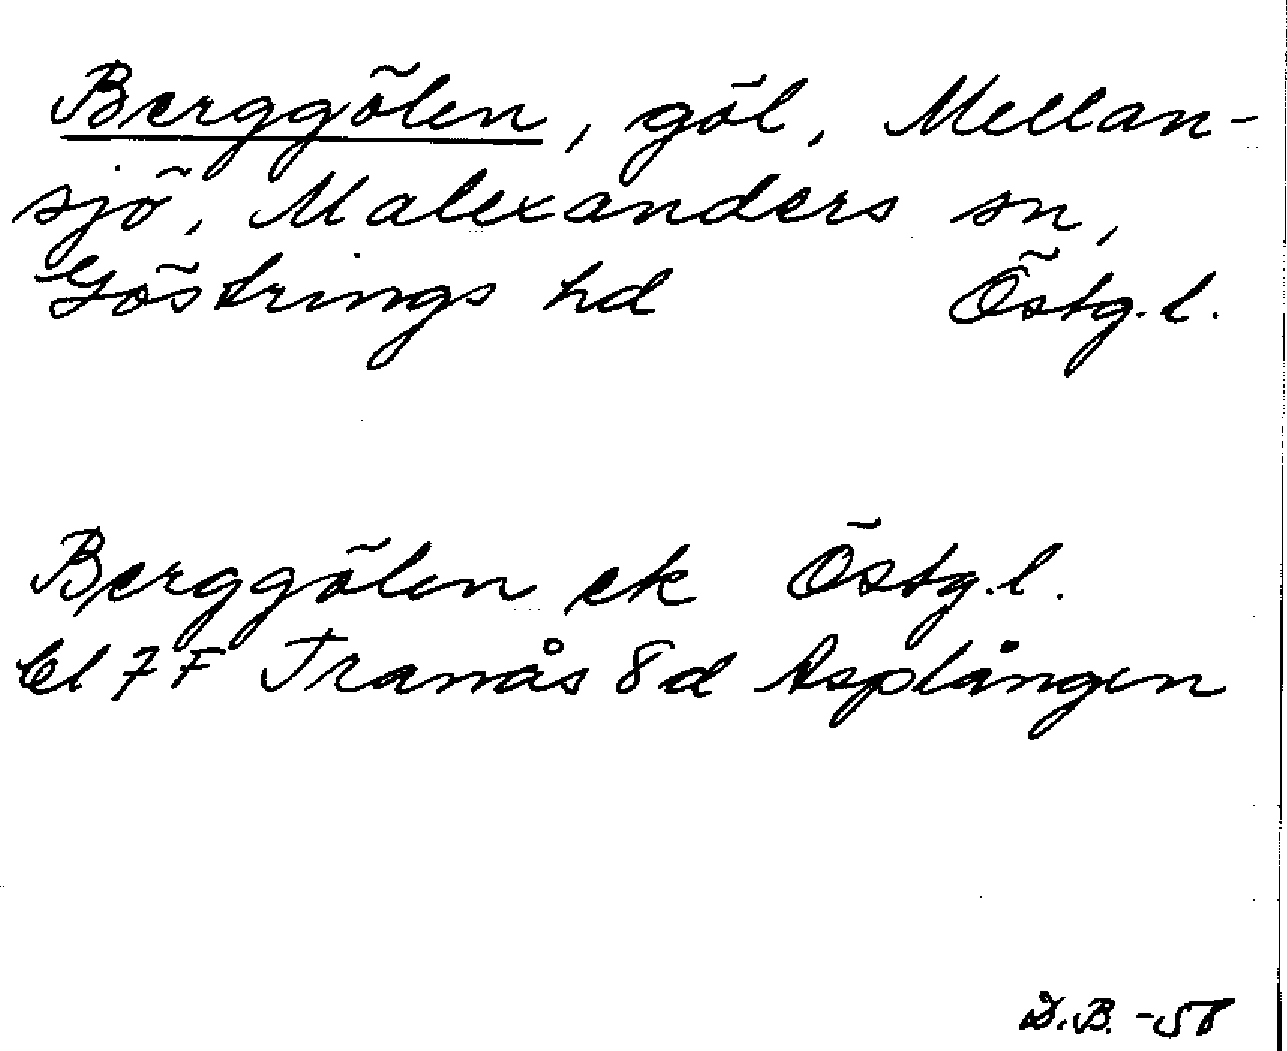 Berggölen, göl, Mellan-
sjö, Malexanders sn,
Göstrings hd Östg.l.
Berggölen ek Östg.l.
bl 7F Tranås 8d Asplången
D.B. -58